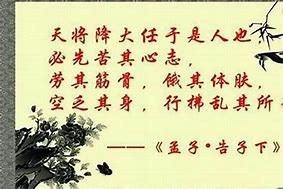 天将降大任于是人也，
必先苦其心志，
劳其筋骨，饿其体肤，
空乏其身，行拂乱其所
——《孟子•告子下》